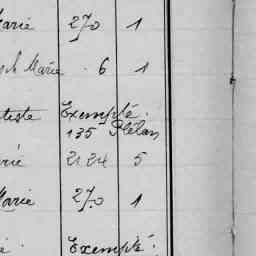 Marie 270 1
ph Marie . 6 1
tiste Exempté.
135 Plélan
rié 2124 5
Marie 270 1
é Exempté.